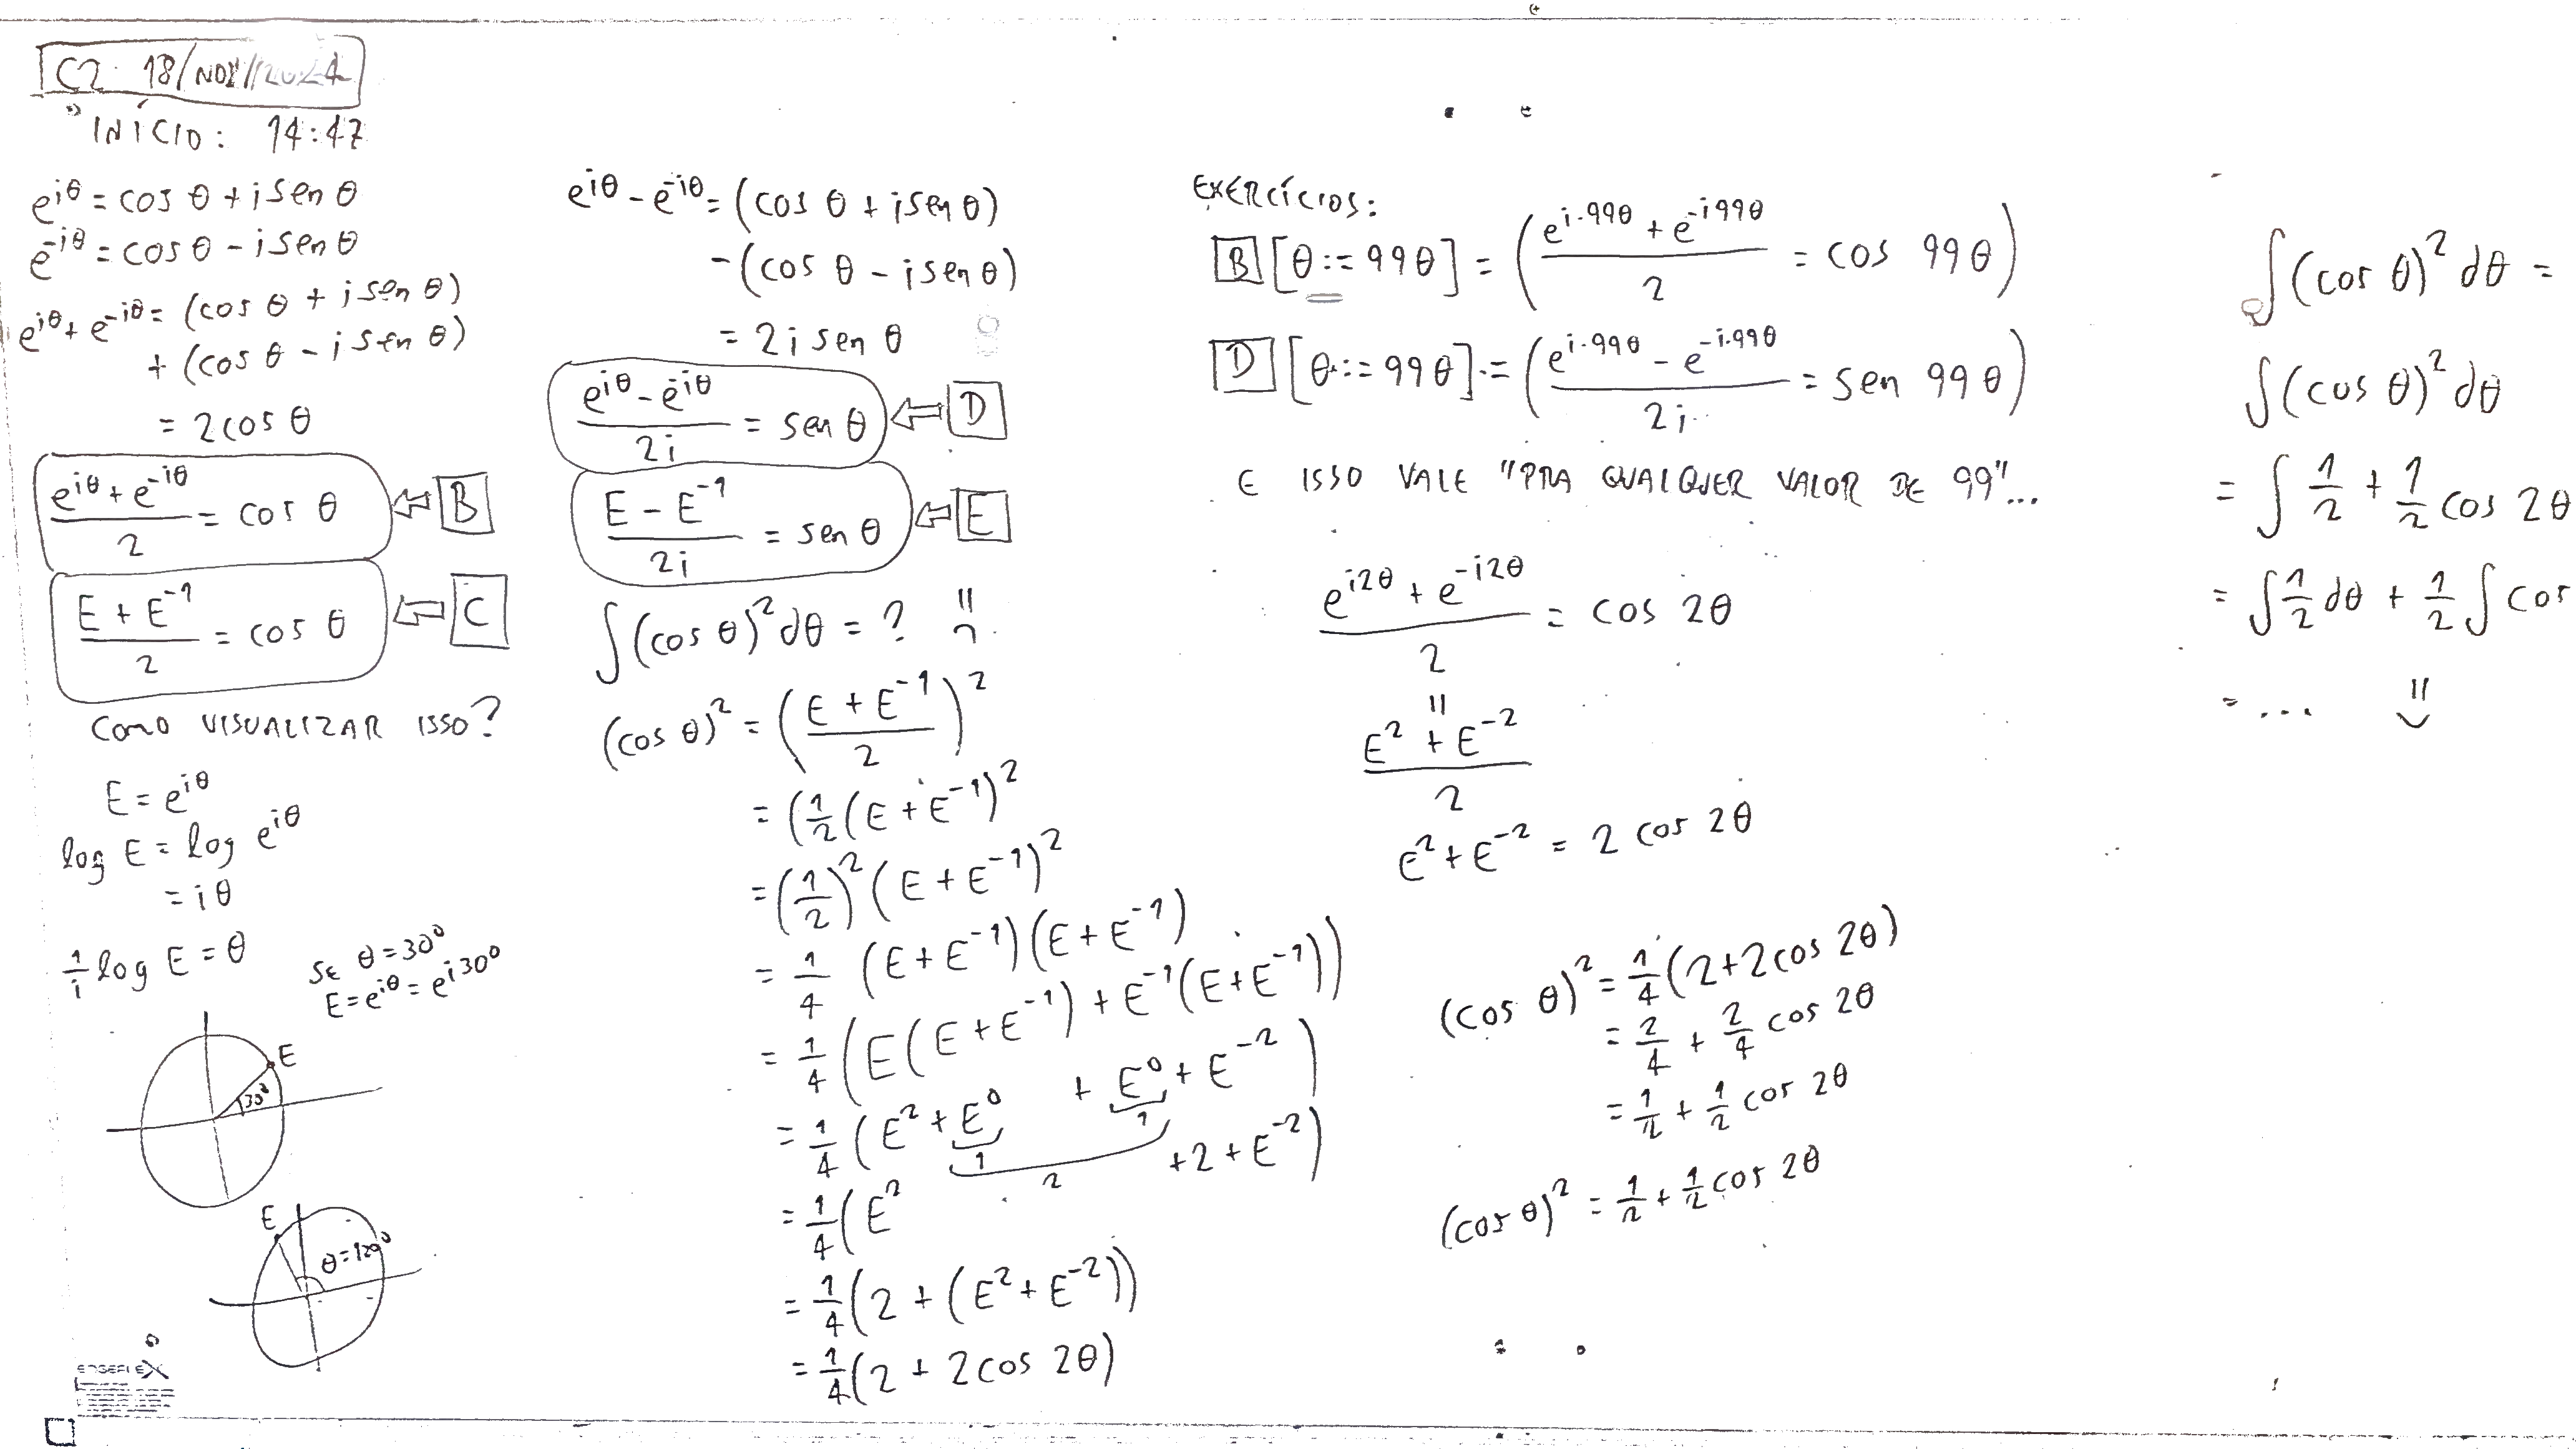 C2 18/NOV/2024
INÍCIO: 14:47
e^{iθ} = cos θ + i sen θ
e^{-iθ} = cos θ - i sen θ
e^{iθ} + e^{-iθ} = (cos θ + i sen θ)
+ (cos θ - i sen θ)
= 2 cos θ
(e^{iθ} + e^{-iθ})/2 = cos θ ⇐ B
(E + E^{-1})/2 = cos θ ⇐ C
COMO VISUALIZAR ISSO?
E = e^{iθ}
log E = log e^{iθ}
= iθ
1/i log E = θ
SE θ = 30°
E = e^{iθ} = e^{i30°}
E
30°
E
θ = 120°
EDGEFLEX
e^{iθ} - e^{-iθ} = (cos θ + i sen θ)
- (cos θ - i sen θ)
= 2i sen θ
(e^{iθ} - e^{-iθ})/2i = sen θ ⇐ D
(E - E^{-1})/2i = sen θ ⇐ E
∫(cos θ)² dθ = ?
(cos θ)² = ((E + E^{-1})/2)²
= (1/2 (E + E^{-1})²
= (1/2)² (E + E^{-1})²
= 1/4 (E + E^{-1})(E + E^{-1})
= 1/4 (E(E + E^{-1}) + E^{-1}(E + E^{-1}))
= 1/4 (E² + E⁰ + E⁰ + E^{-2})
1 1
2
= 1/4 (E² + 2 + E^{-2})
= 1/4 (2 + (E² + E^{-2}))
= 1/4 (2 + 2 cos 2θ)
EXERCÍCIOS:
B [θ := 99θ] = ((e^{i·99θ} + e^{-i99θ})/2 = cos 99θ)
D [θ := 99θ] = ((e^{i·99θ} - e^{-i·99θ})/2i = sen 99θ)
E ISSO VALE "PRA QUALQUER VALOR DE 99"...
(e^{i2θ} + e^{-i2θ})/2 = cos 2θ
=
(E² + E^{-2})/2
E² + E^{-2} = 2 cos 2θ
(cos θ)² = 1/4 (2 + 2 cos 2θ)
= 2/4 + 2/4 cos 2θ
= 1/2 + 1/2 cos 2θ
(cos θ)² = 1/2 + 1/2 cos 2θ
∫(cos θ)² dθ =
∫(cos θ)² dθ
= ∫ 1/2 + 1/2 cos 2θ
= ∫ 1/2 dθ + 1/2 ∫ cos
= ...